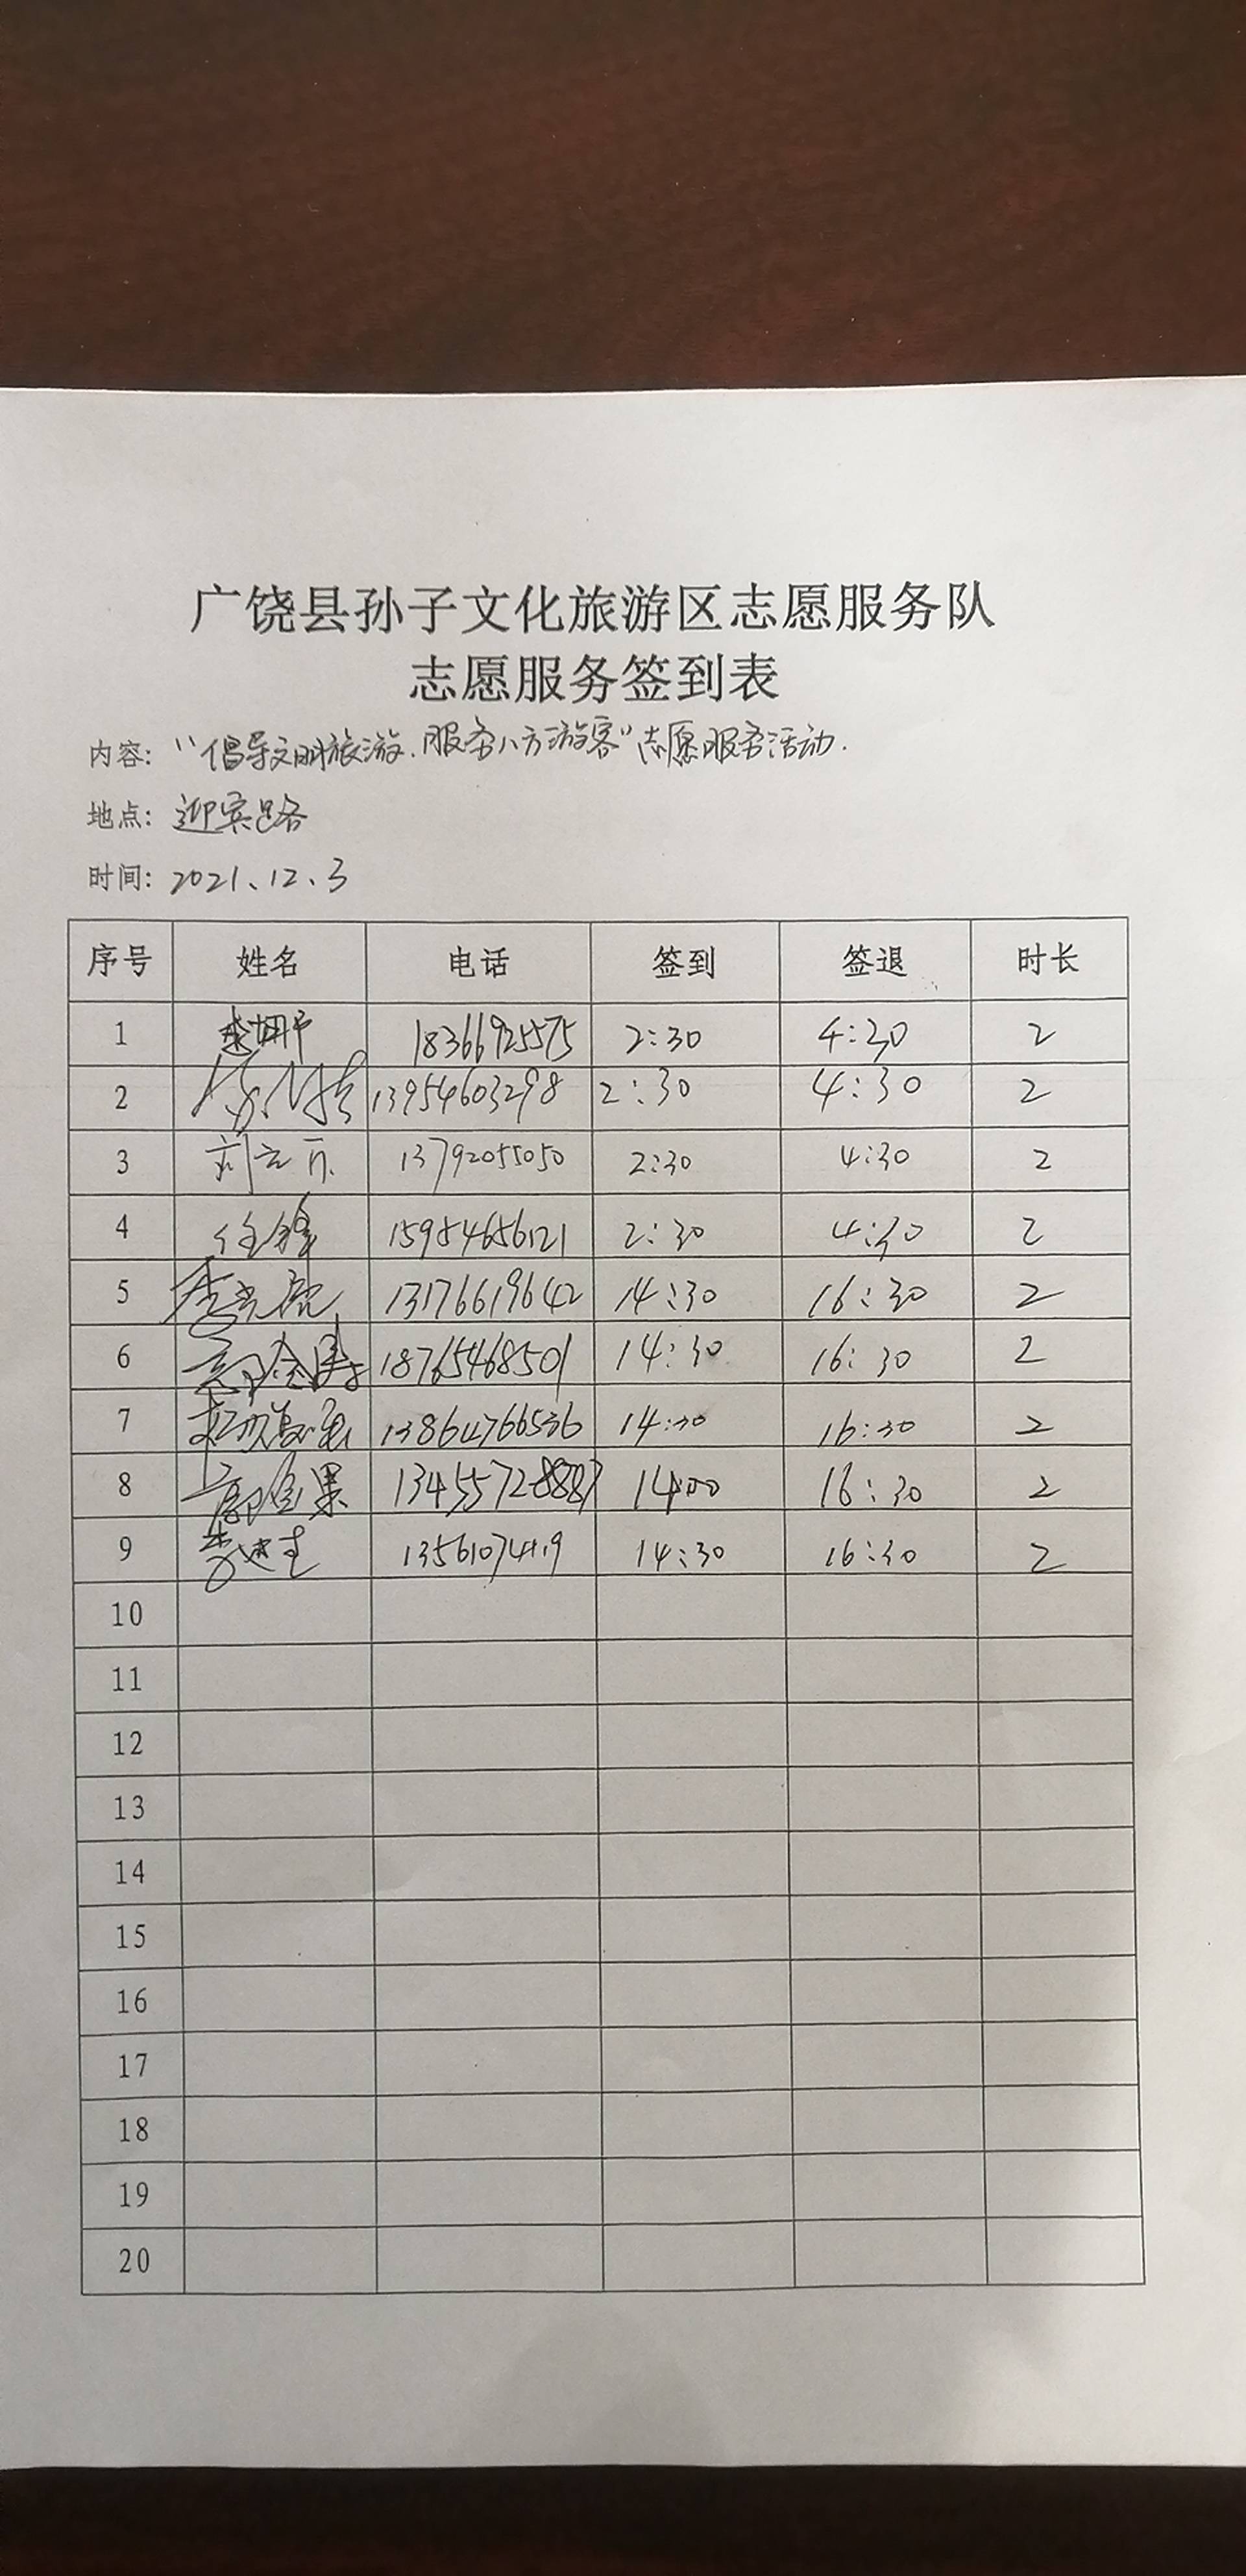 广饶县孙子文化旅游区志愿服务队
志愿服务签到表
内容: “倡导文明旅游.服务八方游客”志愿服务活动.
地点: 迎宾路
时间: 2021、12、3
序号 姓名 电话 签到 签退 时长
1 18366925575 2:30 4:30 2
2 13954603298 2:30 4:30 2
3 13792055050 2:30 4:30 2
4 任锋 15954656121 2:30 4:30 2
5 13176619642 14:30 16:30 2
6 18765468501 14:30 16:30 2
7 13864766536 14:30 16:30 2
8 14:00 16:30 2
9 14:30 16:30 2
10
11
12
13
14
15
16
17
18
19
20